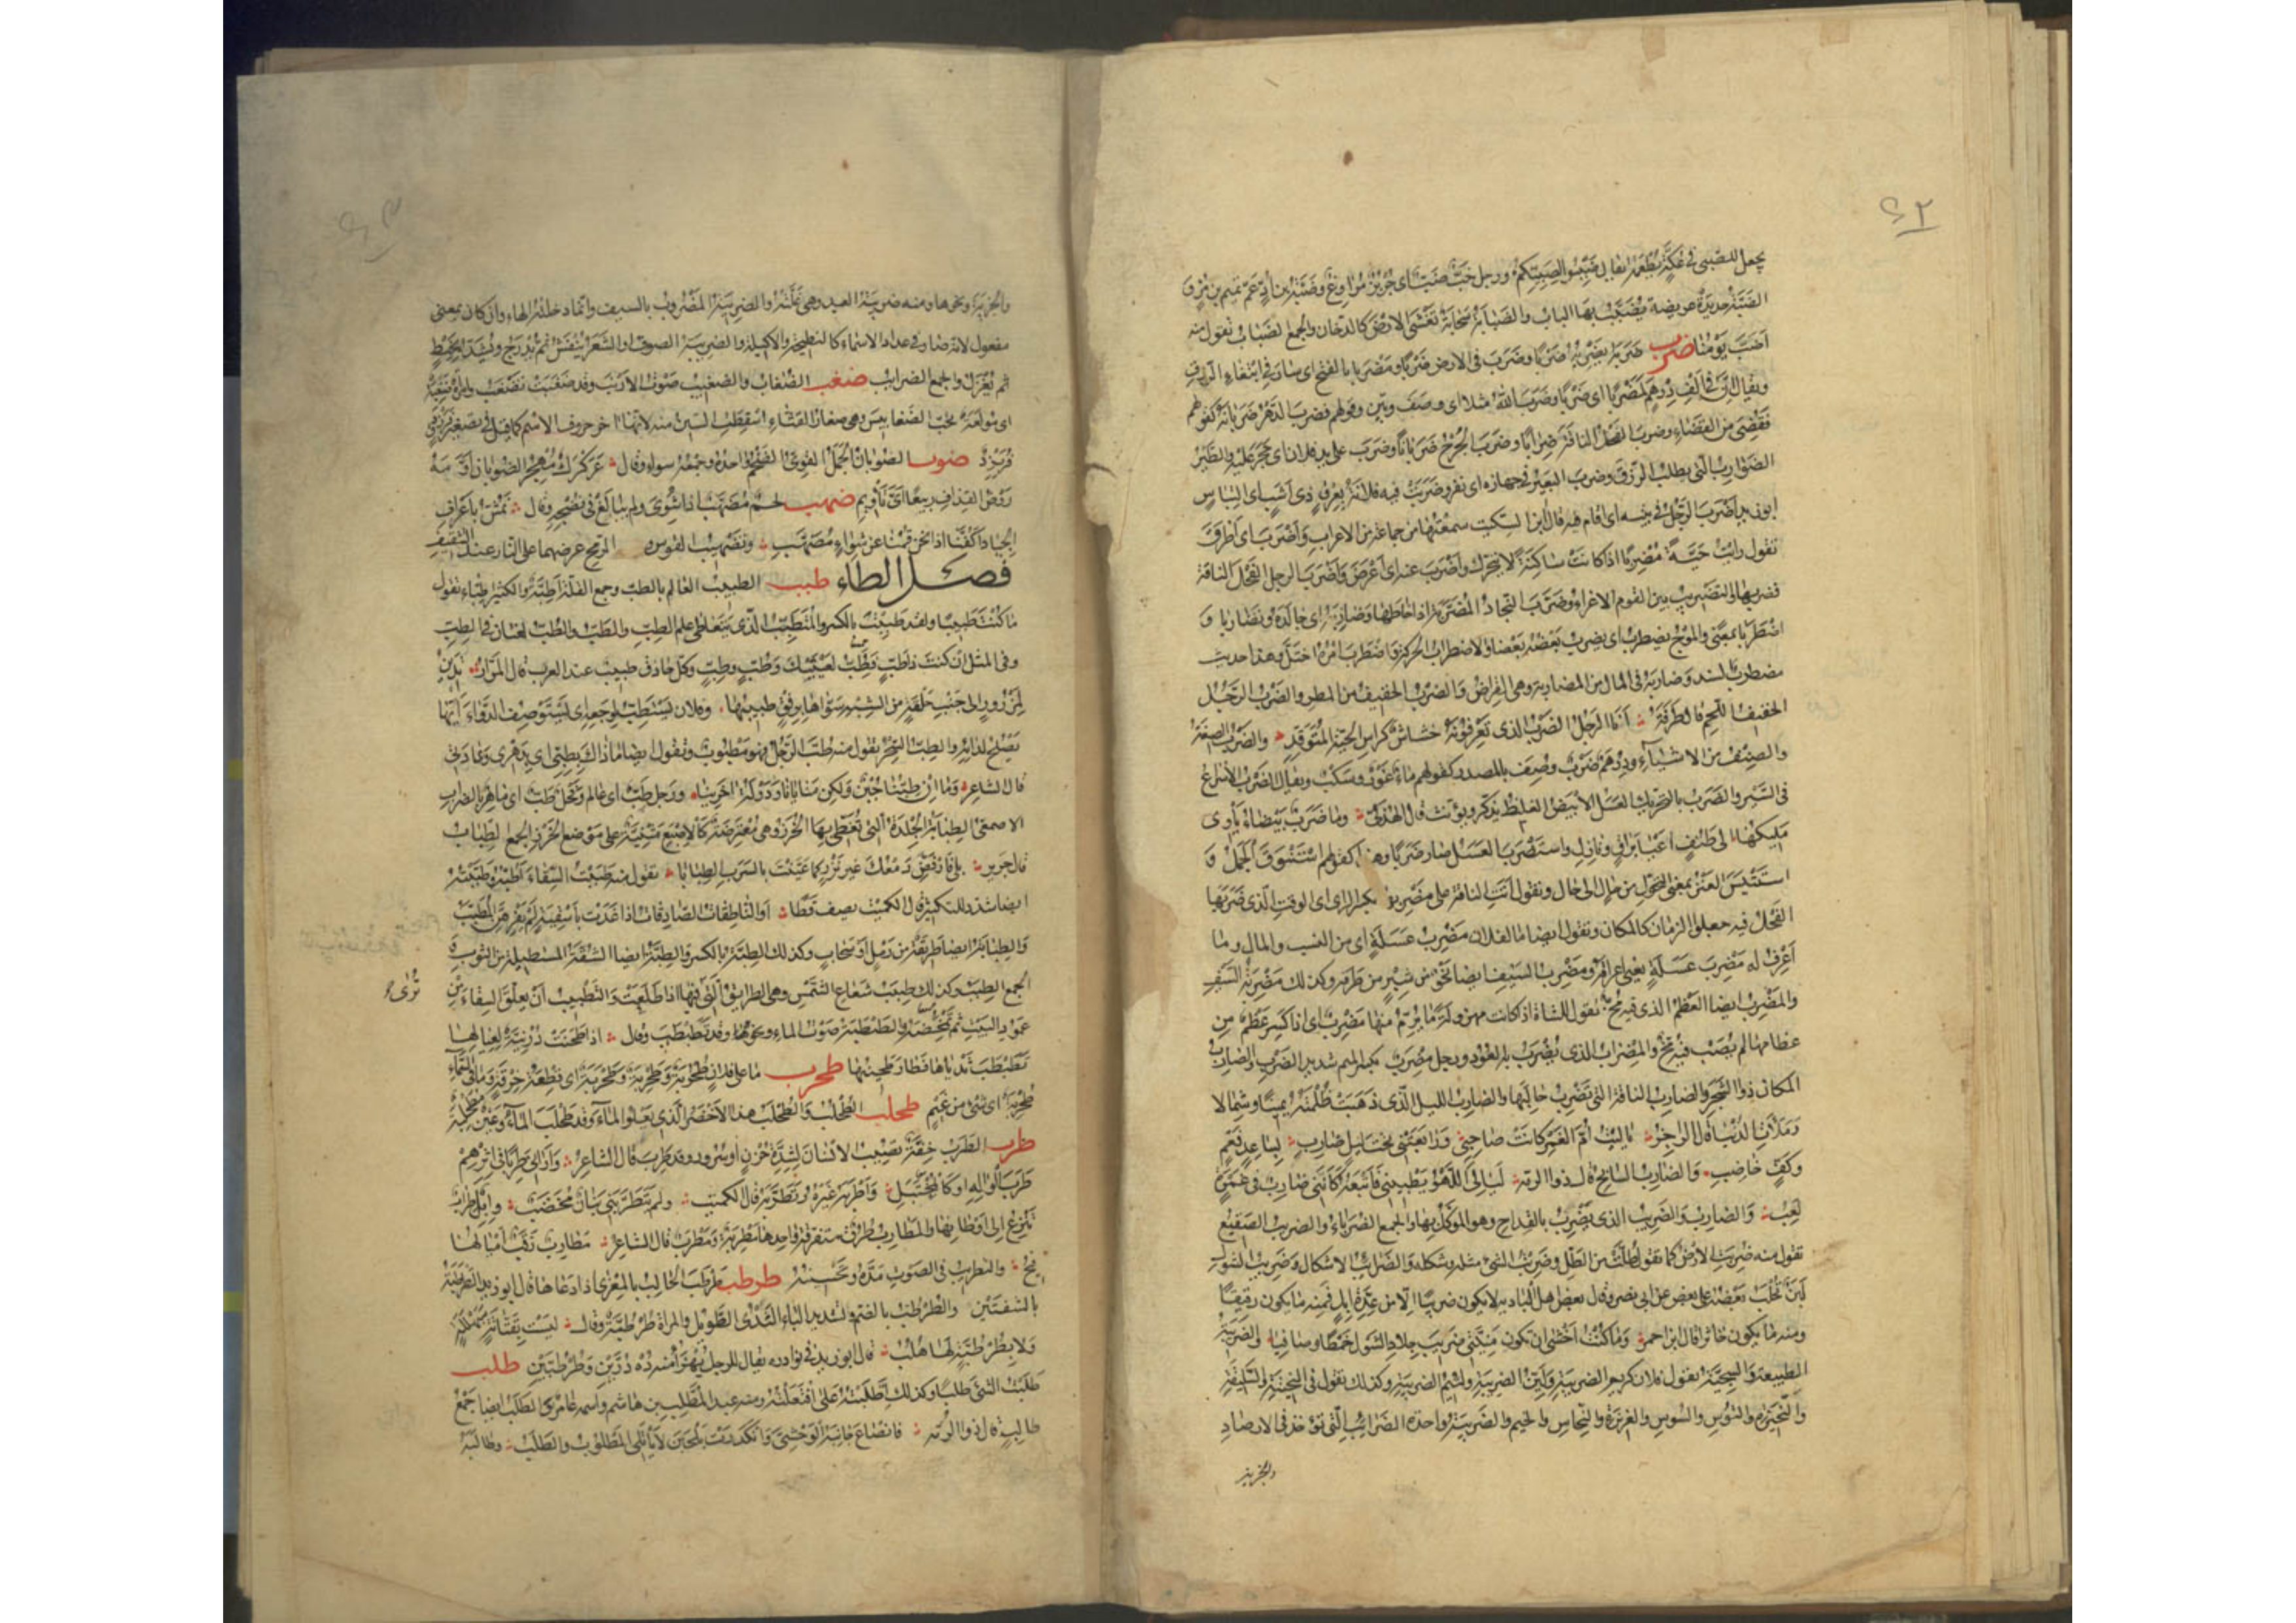 ٤٢
يجعل للصبي في عكة يطعمه يقال ضببوا لصبيتكم ورجل خب ضب اي جربز مراوغ وضبة بن اد عم تميم بن مر و
الضبة حديدة عريضة يضبب بها الباب والضبابة سحابة تغشى الارض كالدخان والجمع الضباب تقول منه
اضب يومنا ضرب ضربه يضربه ضربا وضرب في الارض ضربا ومضربا بالفتح اي سار في ابتغاء الرزق
ويقال ان في الف درهم لمضربا اي ضربا وضرب الله مثلا اي وصف وبين وقولهم فضرب الدهر ضربانه كقولهم
فقضى من القضاء وضرب الفحل الناقة ضرابا وضرب الجرح ضربانا وضرب على يد فلان اي حجر عليه والطير
الضوارب التي تطلب الرزق وضرب البعير في جهازه اي نفر وضربت فيه فلانة بعرق ذي اشب اي التباس
ابو زيد اضرب الرجل في بيته اي اقام فيه قال ابن السكيت سمعتها من جماعة من الاعراب واضرب اي اطرق
تقول رايت حية مضربا اذا كانت ساكنة لا تتحرك واضرب عنه اي اعرض واضرب الرجل الفحل الناقة
فضربها والتضريب بين القوم الاغراء وضرب النجاد المضربة اذا خاطها وضاربه اي جالده وتضاربا و
اضطربا بمعنى والموج يضطرب اي يضرب بعضه بعضا والاضطراب الحركة واضطرب امره اختل وهذا حديث
مضطرب السند وضاربه في المال من المضاربة وهي القراض والضرب الخفيف من المطر والضرب الرجل
الخفيف اللحم قال طرفة انا الرجل الضرب الذي تعرفونه خشاش كراس الحية المتوقد والضرب الصيغة
والصنف من الاشياء ودرهم ضرب وصف بالمصدر كقولهم ماء غور وسكب ويقال الضرب الاسراع
في السير والضرب بالتحريك العسل الابيض الغليظ يذكر ويؤنث قال الهذلي وما ضرب بيضاء يأوي
مليكها الى طنف اعيا براق ونازل واستضرب العسل صار ضربا وهذا كقولهم استنوق الجمل و
استتيس العنز بمعنى التحول من حال الى حال وتقول اتت الناقة على مضربها بكسر الراء اي الوقت الذي ضربها
الفحل فيه جعلوا الزمان كالمكان وتقول ايضا ما لفلان مضرب عسلة اي من النسب والمال وما
اعرف له مضرب عسلة يعني اعراقه ومضرب السيف ايضا نحو من شبر من طرفه وكذلك مضربة السيف
والمضرب ايضا العظم الذي فيه مخ تقول للشاة اذا كانت مهزولة ما يرم منها مضرب اي اذا كسر عظم من
عظامها لم يصب فيه مخ والمضراب الذي يضرب به العود ورجل مضرب بكسر الميم شديد الضرب والضارب
المكان ذو الشجر والضارب الناقة التي تضرب حالبها والضارب الليل الذي ذهبت ظلمته يمينا وشمالا
وملأت الدنيا قال الراجز يا ليت ام الغمر كانت صاحبي ورابعتني تحت ليل ضارب بساعد فعم
وكف خاضب والضارب السابح قال ذو الرمة ليالي اللهو يطبيني فأتبعه كأنني ضارب في غمرة
لعب والضارب والضريب الذي يضرب بالقداح وهو الموكل بها والجمع الضرباء والضريب الصقيع
تقول منه ضربت الارض كما تقول طلت من الطل وضريب الشئ مثله وشكله والضرائب الاشكال وضريب الشول
لبن يحلب بعضه على بعض عن ابي نصر وقال بعض اهل البادية لا يكون ضريبا الا من عدة ابل فمنه ما يكون رقيقا
ومنه ما يكون خاثرا قال ابن احمر وما كنت اخشى ان تكون منيتي ضريب جلاد الشول خمطا وصافيا والضريبة
الطبيعة والسجية تقول فلان كريم الضريبة ولئيم الضريبة وكذلك تقول في النحيتة والسليقة
والنحيزة والتوس والسوس والغريزة والنحاس والخيم والضريبة واحدة الضرائب التي تؤخذ في الارصاد
والجزية
٤٣
والجزية ونحوها ومنه ضريبة العبد وهي غلته والضريبة المضروب بالسيف وانما دخلته الهاء وان كان بمعنى
مفعول لانه صار في عداد الاسماء كالنطيحة والاكيلة والضريبة الصوف او الشعر ينفش ثم يدرج ويشد بخيط
ثم يغزل والجمع الضرايب ضغب الضغاب والضغيب صوت الارنب وقد ضغبت تضغب وامرأة ضغبة
اي مولعة بحب الضغابيس وهي صغار القثاء اسقطت السين منه لانها اخر حروف الاسم كما قيل في تصغير فرزدق
فريزد ضوب الضوبان الجمل القوي الضخم واحده وجمعه سواء وقال عركرك مهجر الضوبان اومه
روض القذاف ربيعا اي تأويم ضهب لحم مضهب اذا شوى ولم يبالغ في نضجه وقال نمش باعراف
الجياد اكفنا اذا نحن قمنا عن شواء مضهب وتضهيب القوس والرمح عرضهما على النار عند التثقيف
فصل الطاء طبب الطبيب العالم بالطب وجمع القلة اطبة والكثير اطباء تقول
ما كنت طبيبا ولقد طببت بالكسر والمتطبب الذي يتعاطى علم الطب والطب والطب لغتان في الطب
وفي المثل ان كنت ذا طب فطب لعينيك وطب وطب وكل حاذق طبيب عند العرب قال المرار يدين
لمزرور الى جنب حلقة من الشبه سواها برفق طبيبها وفلان يستطب لوجعه اي يستوصف الدواء ايها
يصلح لدائه والطب السحر تقول منه طب الرجل فهو مطبوب وتقول ايضا ما ذاك بطبي اي بدهري وعادتي
قال الشاعر وما ان طبنا جبن ولكن منايانا ودولة اخرينا ورجل طب اي عالم وفحل طب اي ماهر بالضراب
الاصمعي الطبابة الجلدة التي تغطى بها الخرز وهي معترضة كالاصبع مثنية على موضع الخرز والجمع الطباب
قال جرير بلى فارفض دمعك غير نزر كما عينت بالسرب الطبابا تقول منه طببت السقاء اطبه وطببته
ايضا شدد للتكثير قال الكميت يصف قطا او الناطقات الصادقات اذا غدت باسقية لم يفرهن المطبب
والطبابة ايضا طريقة من رمل او سحاب وكذلك الطبة بالكسر والطبة ايضا الشقة المستطيلة من الثوب
الجمع الطبب وكذلك طبب شعاع الشمس وهي الطرايق التي ترى فيها اذا طلعت والتطبيب ان يعلق السقاء من
عمود البيت ثم تمخضه والطبطبة صوت الماء ونحوه وقد تطبطب وقال اذا طحنت درنية لعيالها
تطبطب ثدياها فطار طحينها طحرب ما على فلان طحربة وطحربة وطحربة اي قطعة خرقة وما في السماء
طحربة اي شئ من غيم طحلب الطحلب والطحلب هذا الاخضر الذي يعلو الماء وقد طحلب الماء وعين مطحلبة
طرب الطرب خفة تصيب الانسان لشدة حزن او سرور وقد طرب قال الشاعر واراني طربا في اثرهم
طرب الواله او كالمختبل واطربه غيره وتطربه قال الكميت ولم تتطربني بنان مخضب وابل طراب
تنزع الى اوطانها والمطارب طرق متفرقة واحدها مطربة ومطرب قال الشاعر مطارب زقب اميالها
فيح والتطريب في الصوت مده وتحسينه طرطب طرطب الحالب بالمعزى اذا دعاها قال ابو زيد الطرطبة
بالشفتين والطرطب بالضم وتشديد الباء الثدي الطويل والمرأة طرطبة وقال ليست بقتاتة سبهللة
ولا بطرطبة لها هلب قال ابو زيد في نوادره يقال للرجل يهزأ منه دهدرين وطرطبين طلب
طلبت الشئ طلبا وكذلك اطلبته على افتعلته ومنه عبد المطلب بن هاشم واسمه عامر والطلب ايضا جمع
طالب قال ذو الرمة فانصاع جانبه الوحشي وانكدرت يلحبن لا يأتلي المطلوب والطلب وطالبه
ترى